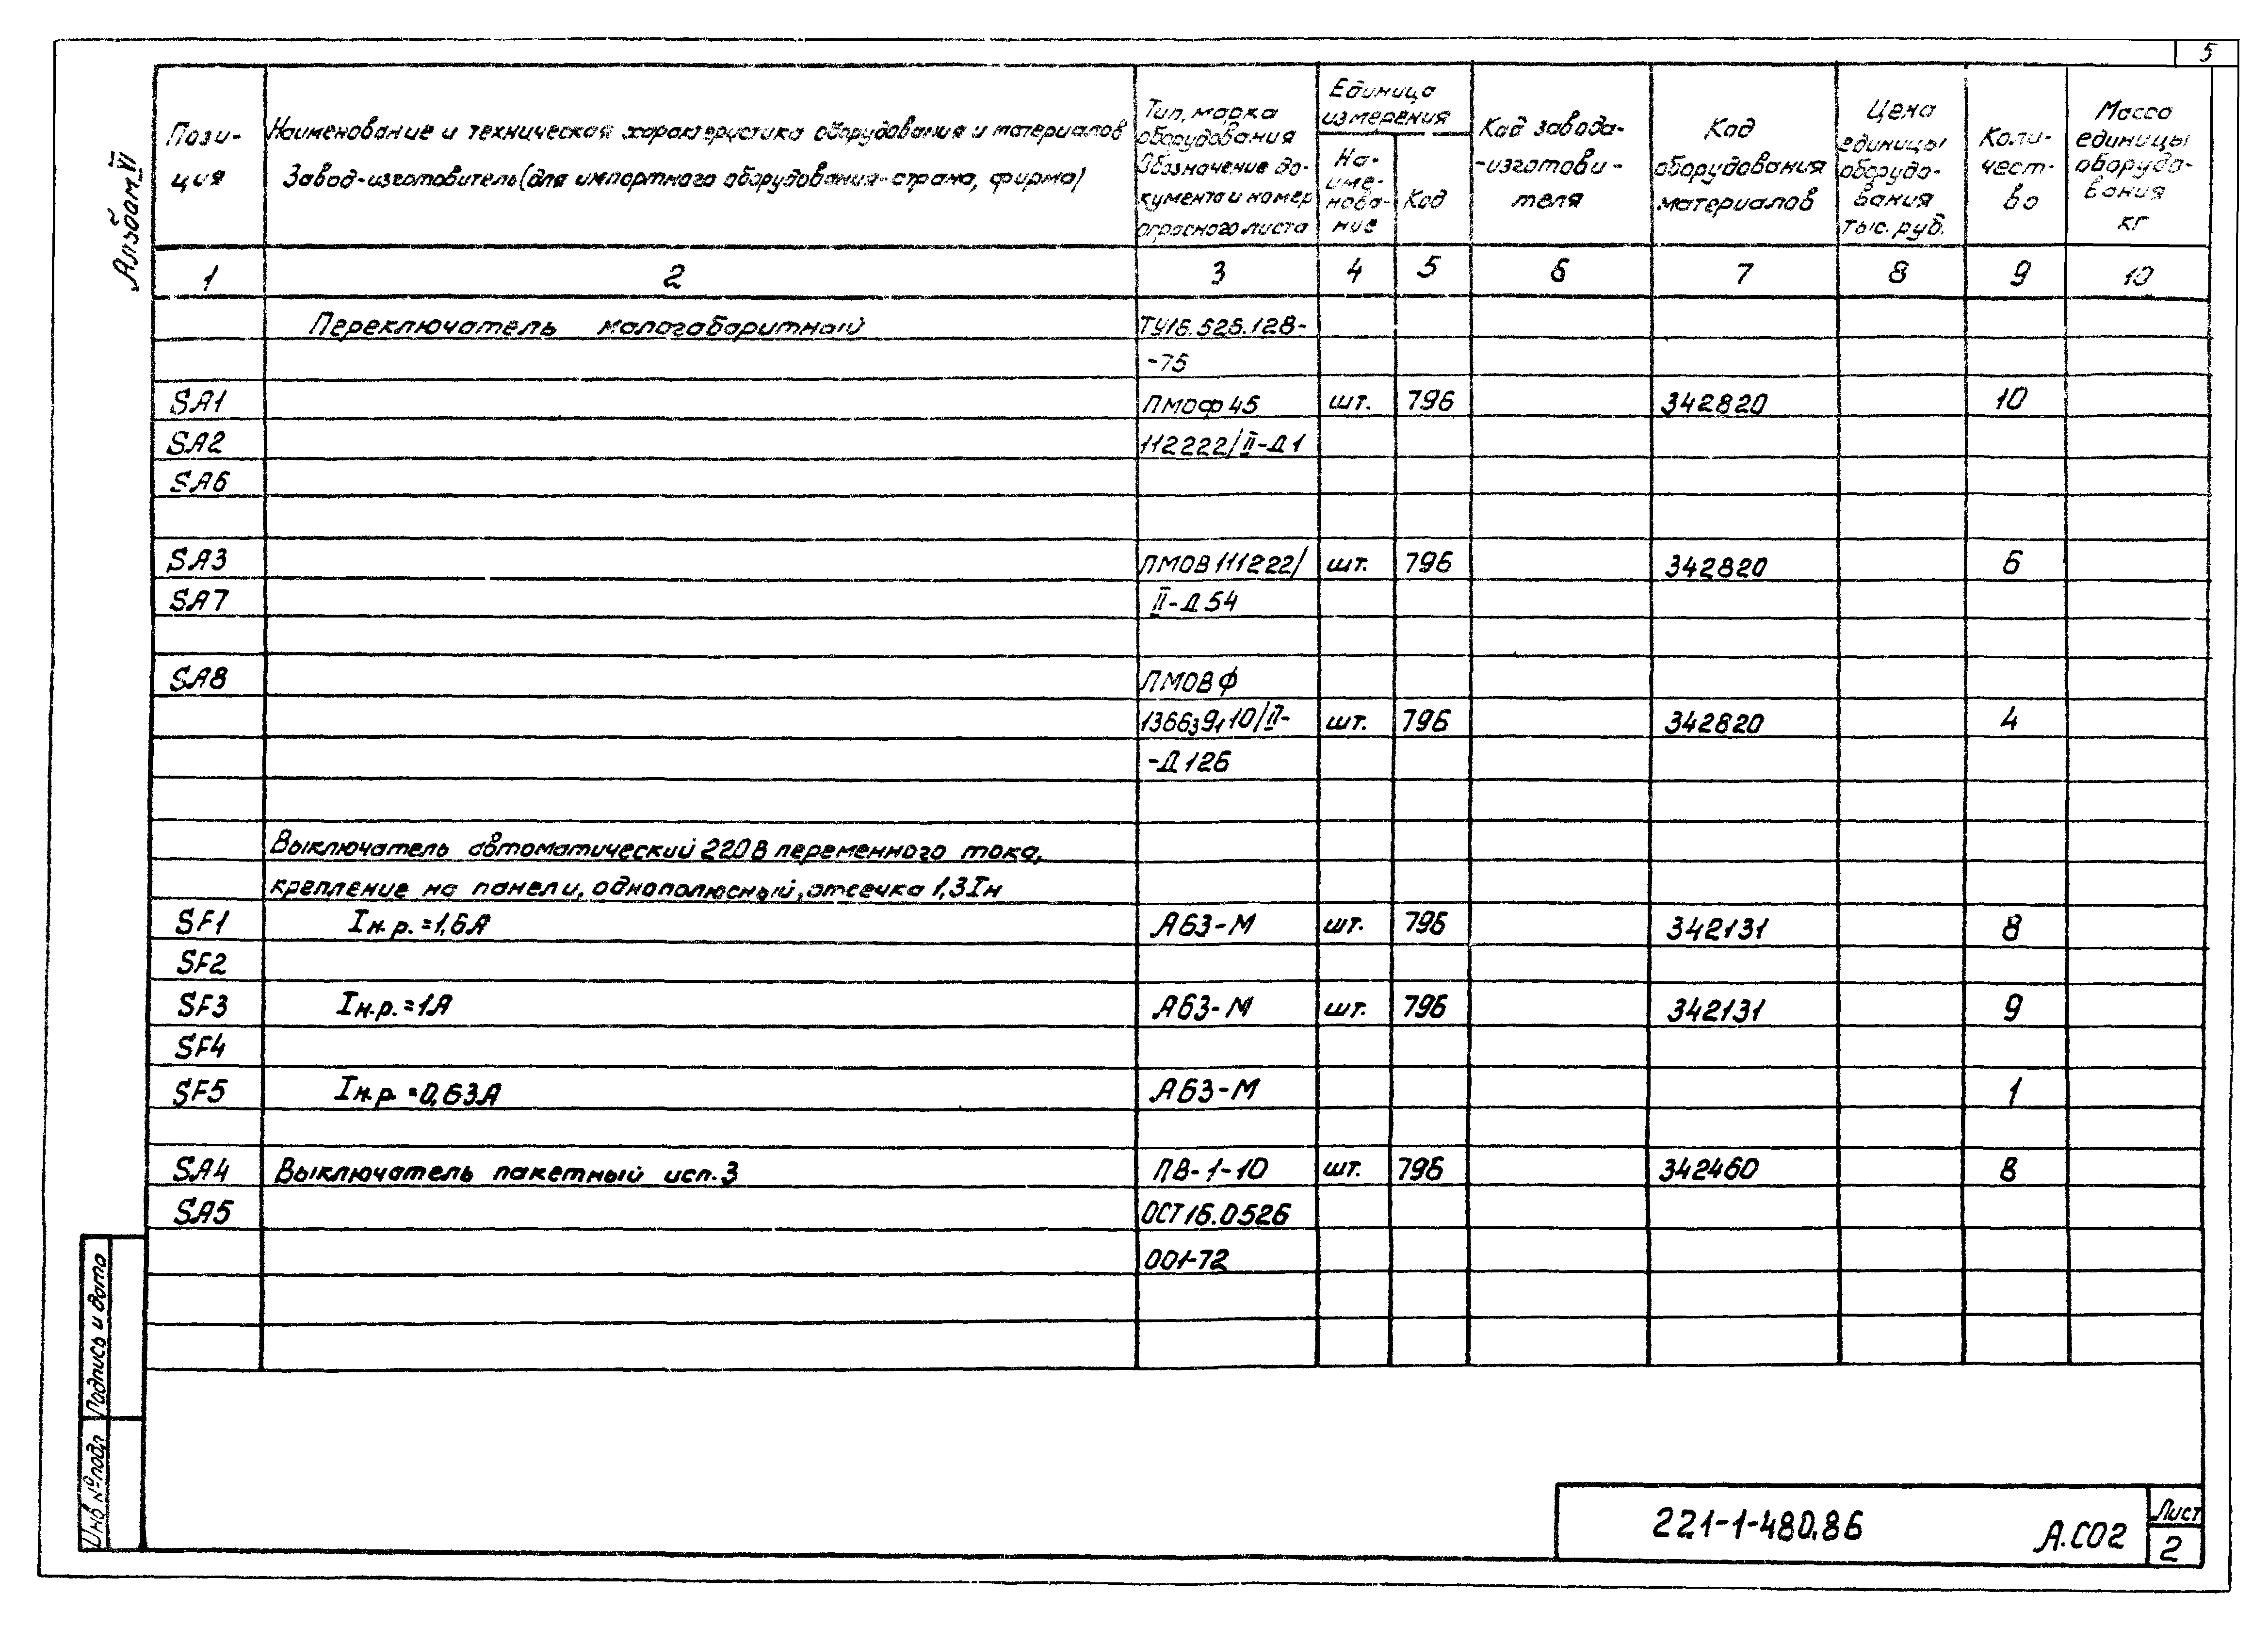 5
Альбом VI
Пози-
ция
Наименование и техническая характеристика оборудования и материалов
Завод-изготовитель (для импортного оборудования-страна, фирма)
Тип, марка
оборудования
Обозначение до-
кумента и номер
опросного листа
Единица
измерения
На-
име-
нова-
ние
Код
Код завода-
-изготови-
теля
Код
оборудования
материалов
Цена
единицы
оборудо-
вания
тыс. руб.
Коли-
чест-
во
Масса
единицы
оборудо-
вания
кг
1 2 3 4 5 6 7 8 9 10
Переключатель малогабаритный ТУ16.526.128-
-75
SA1 ПМОФ45 шт. 796 342820 10
SA2 112222/II-Д1
SA6
SA3 ПМОВ111222/ шт. 796 342820 6
SA7 II-Д54
SA8 ПМОВФ
136639110/II- шт. 796 342820 4
-Д126
Выключатель автоматический 220В переменного тока,
крепление на панели, однополюсный, отсечка 1,3Iн
SF1 Iн.р.=1,6А А63-М шт. 796 342131 8
SF2
SF3 Iн.р.=1А А63-М шт. 796 342131 9
SF4
SF5 Iн.р.=0,63А А63-М 1
SA4 Выключатель пакетный исп.3 ПВ-1-10 шт. 796 342460 8
SA5 ОСТ16.0526
001-72
Подпись и дата
Инв № подл
221-1-480.86 А.СО2
Лист
2